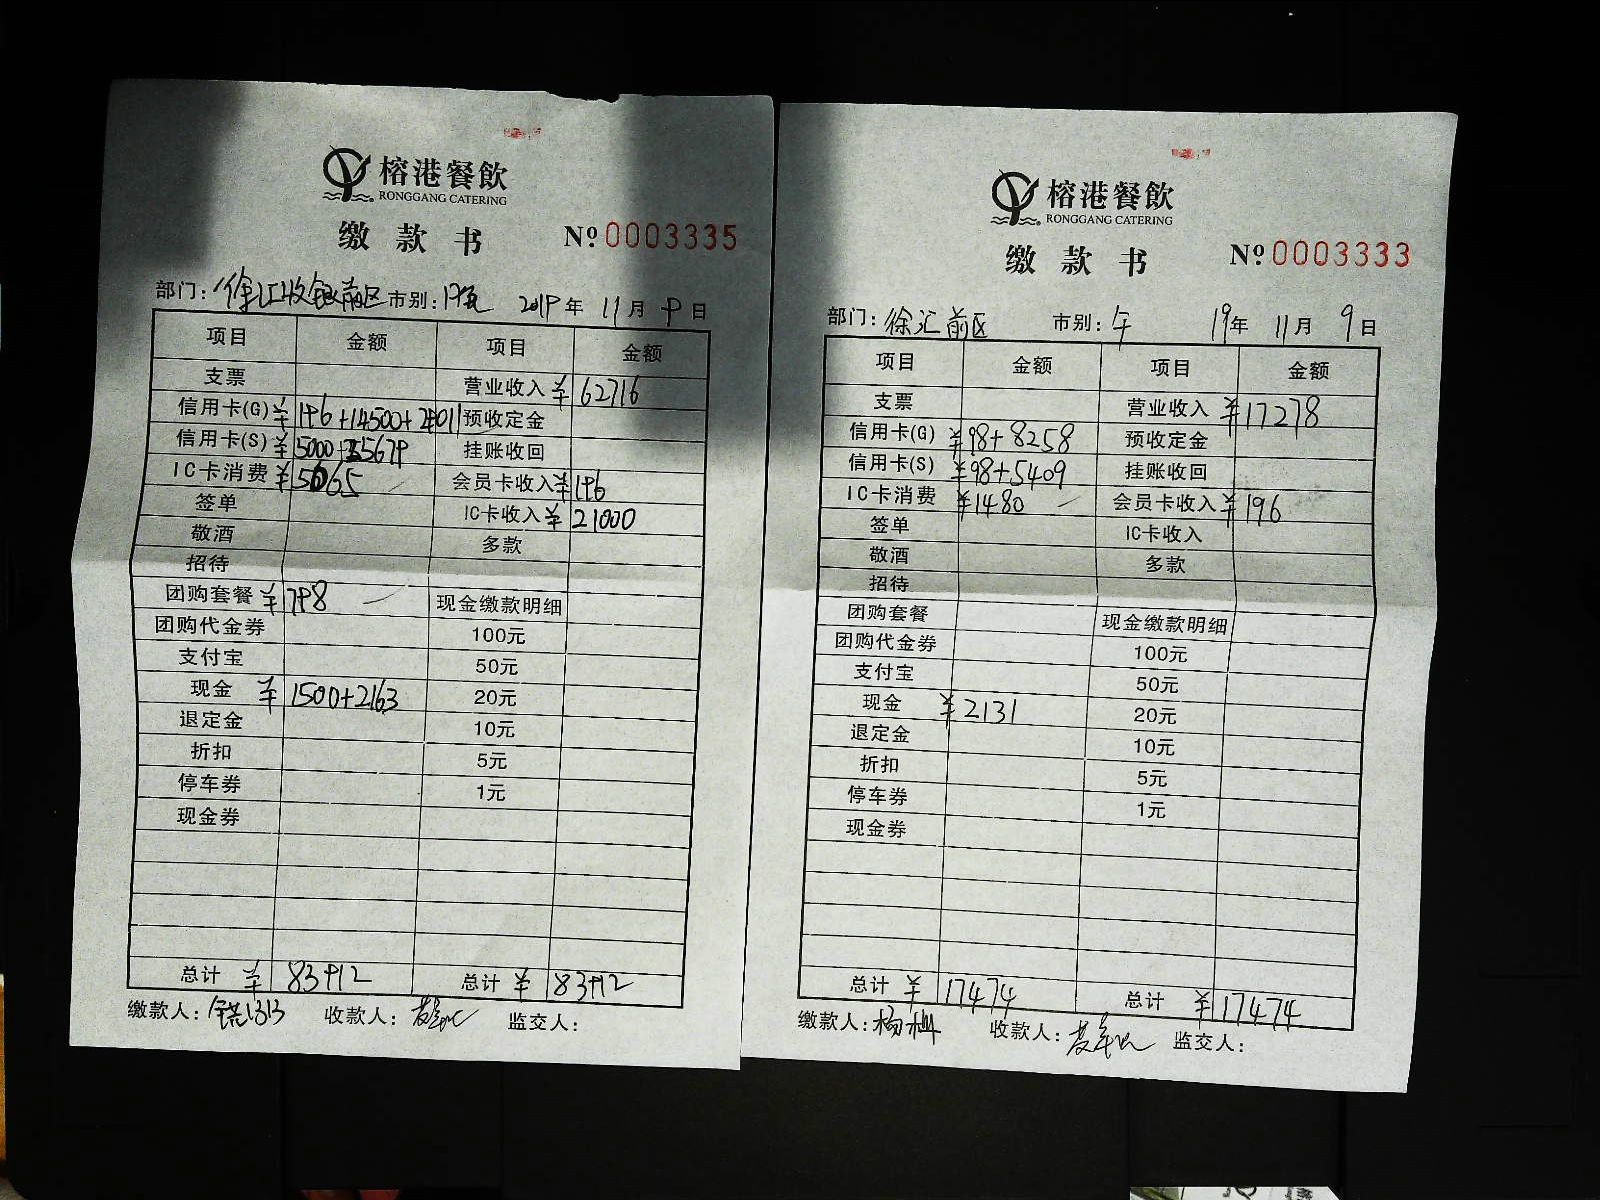 榕港餐飲
RONGGANG CATERING
缴款书 № 0003335
部门：徐汇收银前区 市别： 2019年 11月 9日
项目 金额 项目 金额
支票 营业收入 ¥62716
信用卡(G) ¥196+14500+29011 预收定金
信用卡(S) ¥5000+25679 挂账收回
IC卡消费 ¥5065 会员卡收入 ¥196
签单 IC卡收入 ¥21000
敬酒 多款
招待
团购套餐 ¥798 现金缴款明细
团购代金券 100元
支付宝 50元
现金 ¥1500+2163 20元
退定金 10元
折扣 5元
停车券 1元
现金券
总计 ¥83912 总计 ¥83912
缴款人： 收款人： 监交人：
榕港餐飲
RONGGANG CATERING
缴款书 № 0003333
部门：徐汇前区 市别：午 19年 11月 9日
项目 金额 项目 金额
支票 营业收入 ¥17278
信用卡(G) ¥98+8258 预收定金
信用卡(S) ¥98+5409 挂账收回
IC卡消费 ¥1480 会员卡收入 ¥196
签单 IC卡收入
敬酒 多款
招待
团购套餐 现金缴款明细
团购代金券 100元
支付宝 50元
现金 ¥2131 20元
退定金 10元
折扣 5元
停车券 1元
现金券
总计 ¥17474 总计 ¥17474
缴款人：杨 收款人： 监交人：